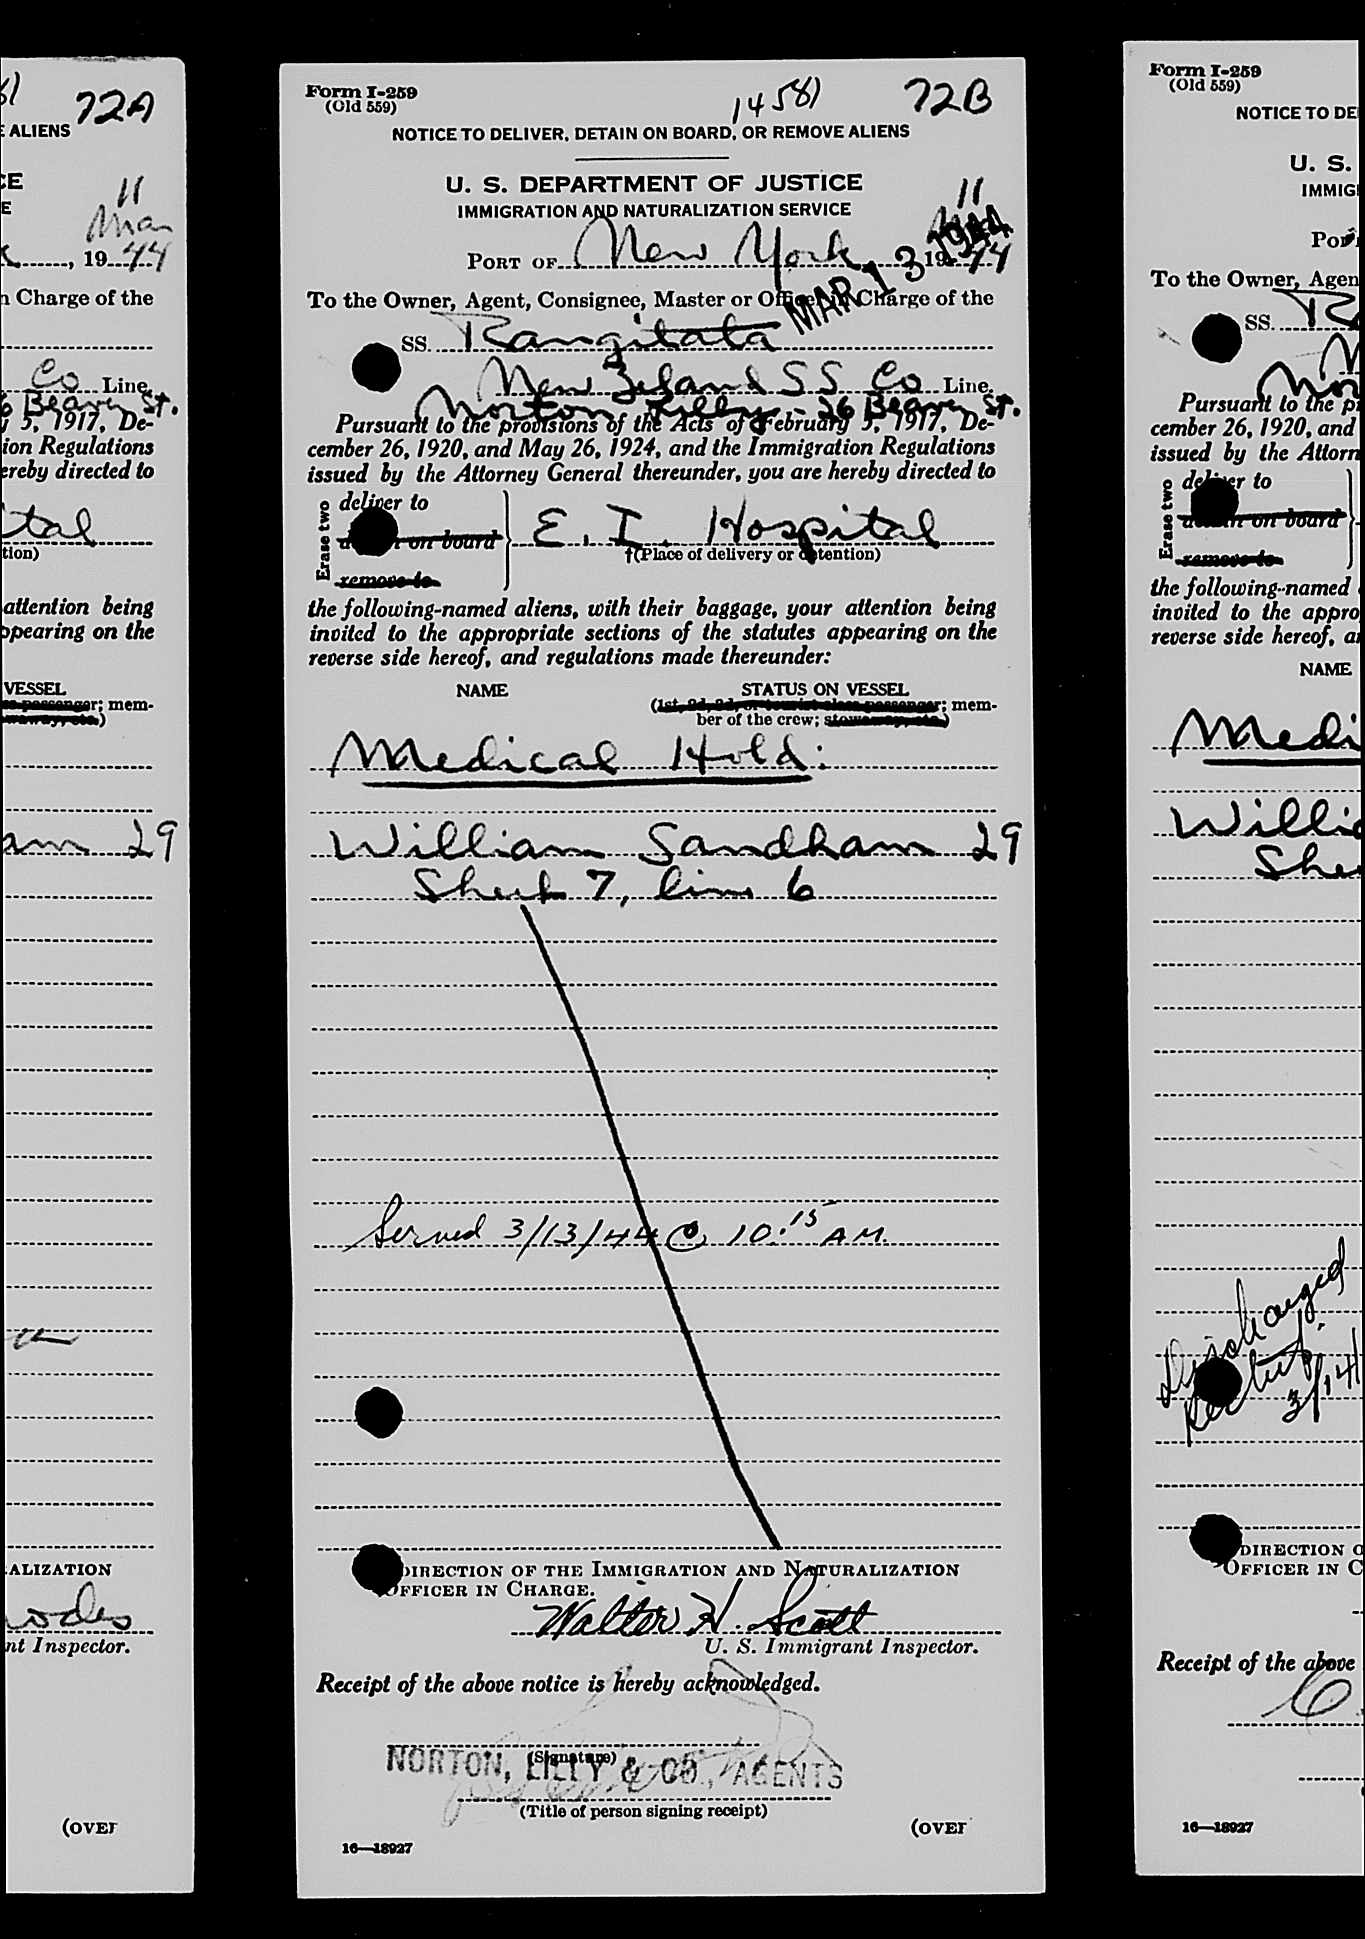 61 72A
E ALIENS
CE
E
11
Mar
, 1944
n Charge of the
Co Line.
6 Beaver St.
y 5, 1917, De-
ion Regulations
ereby directed to
ital
tion)
attention being
ppearing on the
VESSEL
ss passenger; mem-
waway, etc.)
am 29
ALIZATION
nt Inspector.
(OVER
Form I-259
(Old 559)
14581 72B
NOTICE TO DELIVER, DETAIN ON BOARD, OR REMOVE ALIENS
U. S. DEPARTMENT OF JUSTICE
IMMIGRATION AND NATURALIZATION SERVICE
11
PORT OF New York 1944
MAR 13 1944
To the Owner, Agent, Consignee, Master or Officer in Charge of the
SS. Rangitata
New Zeland SS Co Line.
Norton Lilly - 26 Beaver St.
Pursuant to the provisions of the Acts of February 5, 1917, De-
cember 26, 1920, and May 26, 1924, and the Immigration Regulations
issued by the Attorney General thereunder, you are hereby directed to
Erase two
deliver to
detain on board
remove to
E. I. Hospital
†(Place of delivery or detention)
the following-named aliens, with their baggage, your attention being
invited to the appropriate sections of the statutes appearing on the
reverse side hereof, and regulations made thereunder:
NAME STATUS ON VESSEL
(1st, 2d, 3d, or tourist class passenger; mem-
ber of the crew; stowaway, etc.)
Medical Hold:
William Sandham 29
Sheet 7, line 6
Served 3/13/44 @ 10:15 AM.
DIRECTION OF THE IMMIGRATION AND NATURALIZATION
OFFICER IN CHARGE.
Walter H. Scott
U. S. Immigrant Inspector.
Receipt of the above notice is hereby acknowledged.
(Signature)
NORTON, LILLY & CO., AGENTS
(Title of person signing receipt)
(OVER
16—18927
Form I-259
(Old 559)
NOTICE TO DE
U. S.
IMMIG
POR
To the Owner, Agen
SS. R
N
Nor
Pursuant to the p
cember 26, 1920, and
issued by the Attorn
Erase two
deliver to
detain on board
remove to
the following-named
invited to the appro
reverse side hereof, a
NAME
Medi
Willi
She
Discharged
3/14/
DIRECTION O
OFFICER IN C
Receipt of the above
C
16—18927